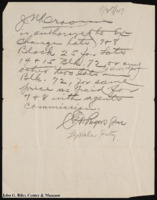 J N Broome
is authorized to
change Lots 7 & 8
Block 25 for Lots
14 & 15 Blk. 72, or any
other two lots in
Blk. 72, for same
price as paid for
7 & 8 with agents
commission.
John G. Riley Center & Museum